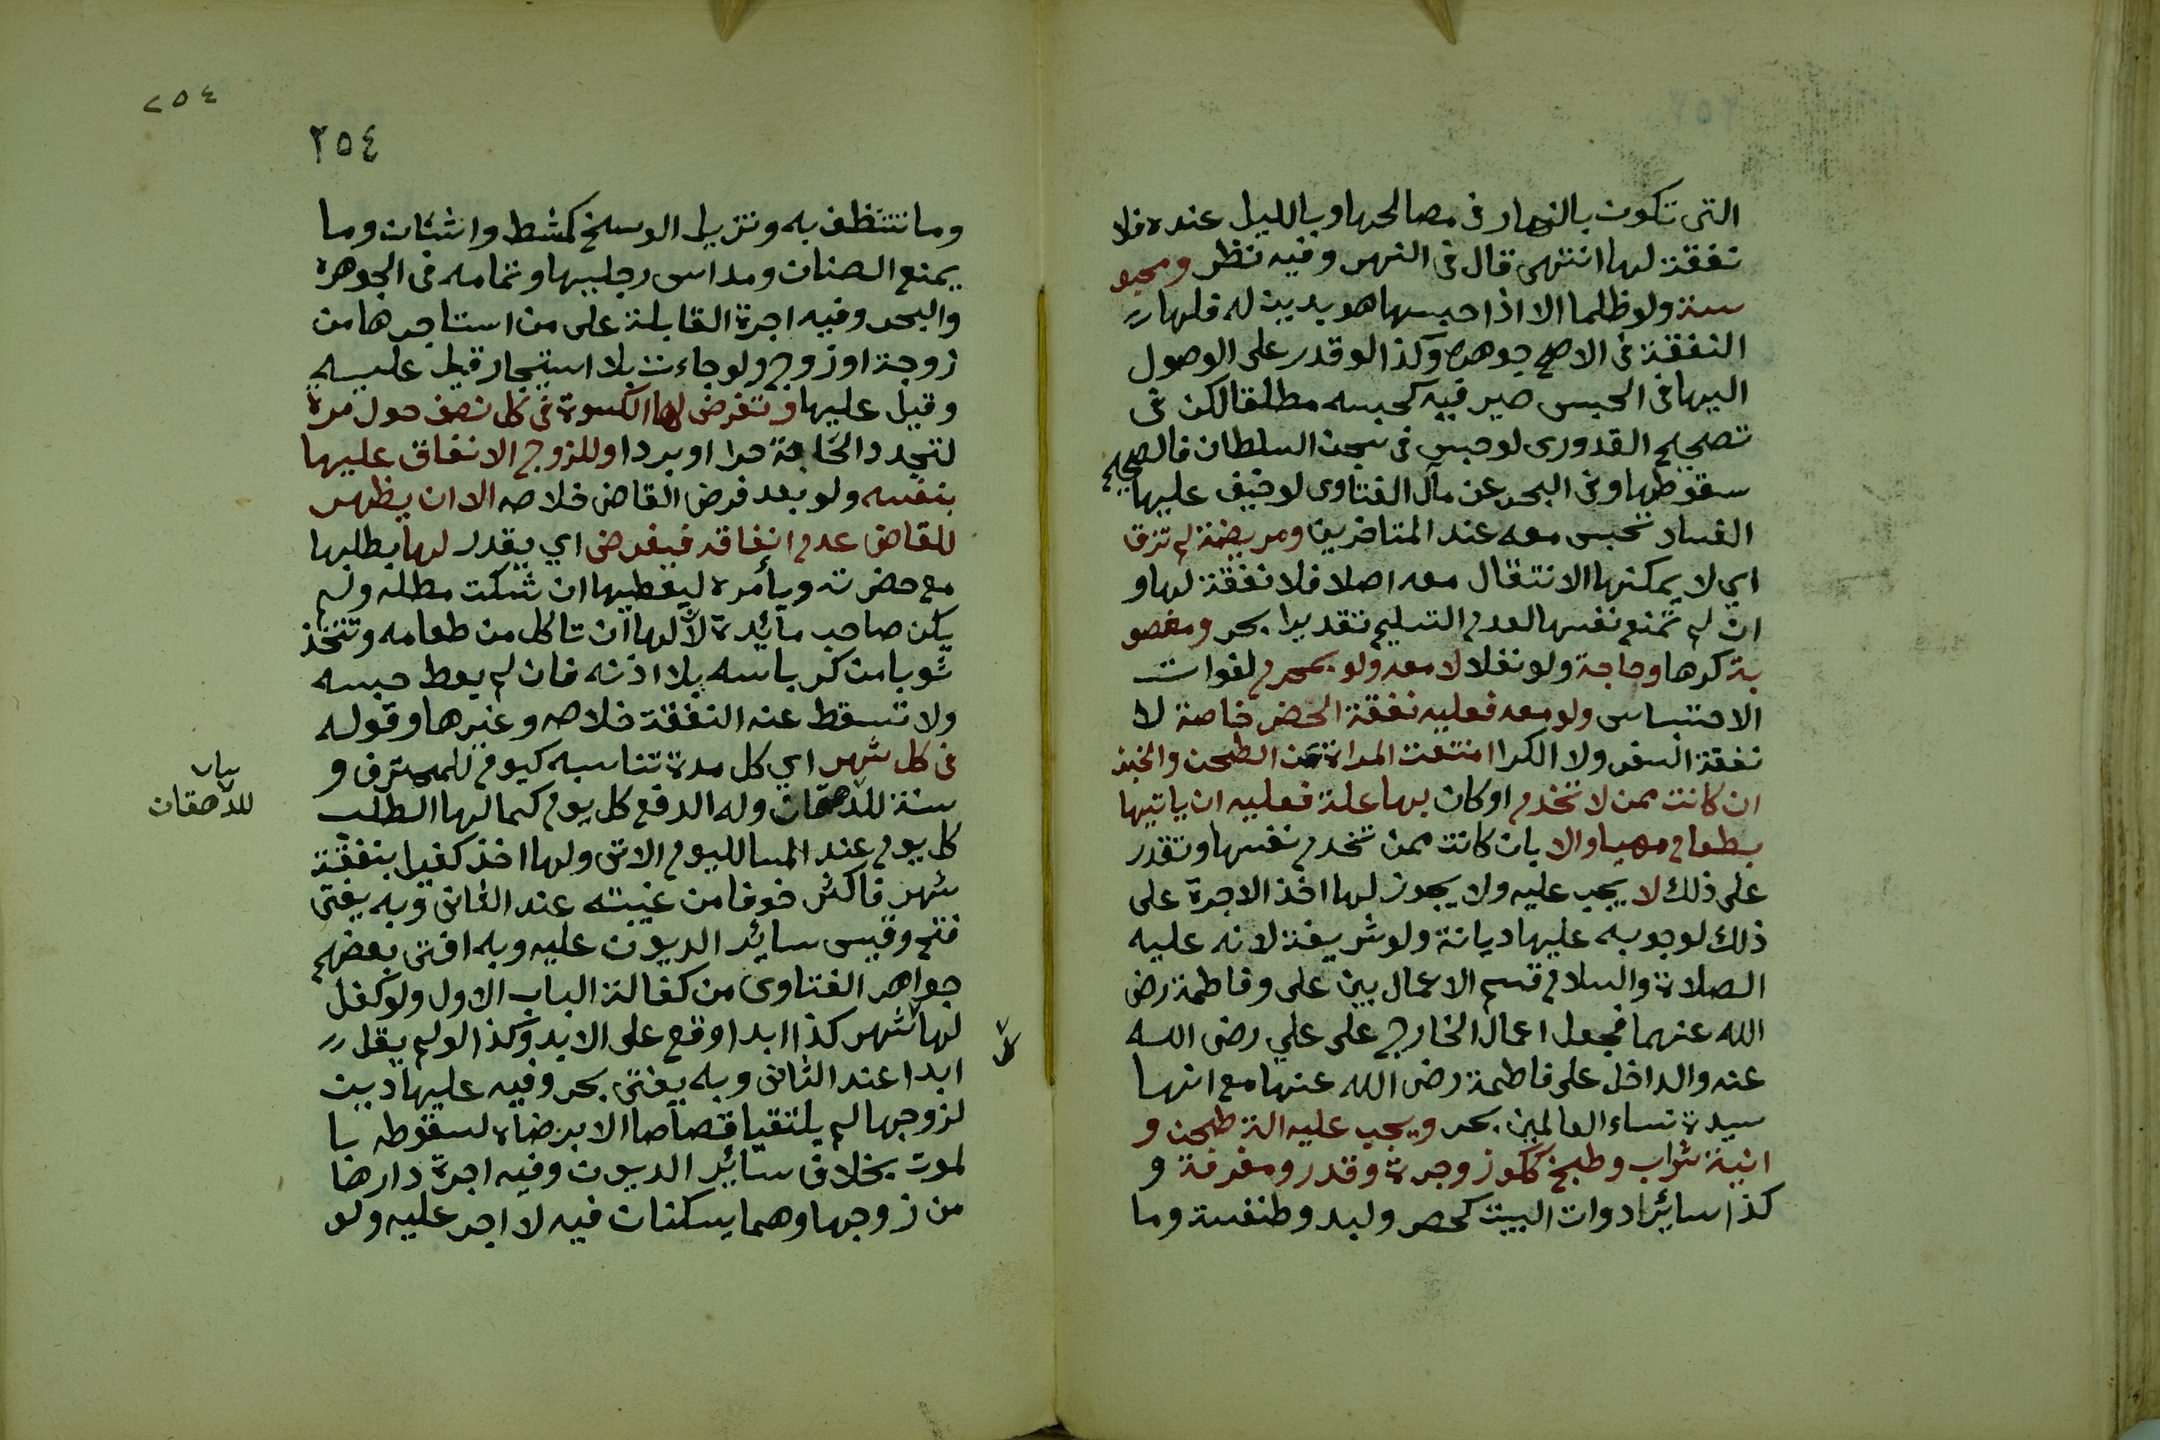 التى تكون بالنهار فى مصالحها وبالليل عنده فلا
نفقة لها انتهى قال فى النهر وفيه نظر ومحبو
سة ولو ظلما الا اذا حبسها هو بدين له فلها
النفقة فى الاصح جوهره وكذا لو قدر على الوصول
اليها فى الحبس صيرفيه كحبسه مطلقا لكن فى
تصحيح القدورى لو حبس فى سجن السلطان فالصحيح
سقوطها وفى البحر عن مآل الفتاوى لو خيف عليها
الفساد تحبس معه عند المتاخرين ومريضة لم تزق
اي لا يمكنها الانتقال معه اصلا فلا نفقة لها و
ان لم تمنع نفسها لعدم التسليم تقديرا بحر ومغصو
بة كرها وحاجة ولو نفلا لا معه ولو بمحرم لفوات
الاحتباس ولو معه فعليه نفقة الحضر خاصة لا
نفقة السفر ولا الكرا امتنعت المراة عن الطحن والخبز
ان كانت ممن لا تخدم او كان بها علة فعليه ان ياتيها
بطعام مهيا والا بان كانت ممن تخدم نفسها وتقدر
على ذلك لا يجب عليه ولا يجوز لها اخذ الاجرة على
ذلك لوجوبه عليها ديانة ولو شريفة لانه عليه
الصلاة والسلام قسم الاعمال بين على وفاطمة رضى
الله عنهما فجعل اعمال الخارج على علي رضى الله
عنه والداخل على فاطمة رضى الله عنها مع انها
سيدة نساء العالمين بحر ويجب عليه الة طحن و
انية شراب وطبخ ككوز وجرة وقدر ومغرفة و
كذا سائر ادوات البيت كحصر ولبد وطنفسة وما
٢٥٤
٢٥٤
وما تتنظف به وتزيل الوسخ كمشط واشنان وما
يمنع الصنان ومداس رجليها وتمامه فى الجوهرة
والبحر وفيه اجرة القابلة على من استاجرها من
زوجة او زوج ولو جاءت بلا استيجار قيل عليه
وقيل عليها وتفرض لها الكسوة فى كل نصف حول مرة
لتجدد الحاجة حرا او بردا وللزوج الانفاق عليها
بنفسه ولو بعد فرض القاضى خلاصه الا ان يظهر
للقاضى عدم انفاقه فيفرض اي يقدر لها بطلبها
مع حضرته ويأمره ليعطيها ان شكت مطله ولم
يكن صاحب مائدة لأن لها ان تاكل من طعامه وتتخذ
ثوبا من كرباسه بلا اذنه فان لم يعط حبسه
ولا تسقط عنه النفقة خلاصه وغيرها وقوله
فى كل شهر اي كل مدة تناسبه كيوم للمحترف و
سنة للدهقان وله الدفع كل يوم كما لها الطلب
كل يوم عند المسا لليوم الاتى ولها اخذ كفيل بنفقة
شهر فاكثر خوفا من غيبته عند الثانى وبه يفتى
فتح وقيس سائر الديون عليه وبه افتى بعضهم
جواهر الفتاوى من كفالة الباب الاول ولو كفل
لها كل شهر كذا ابدا وقع على الابد وكذا لو لم يقل
ابدا عند الثانى وبه يفتى بحر وفيه عليها دين
لزوجها لم يلتقيا قصاصا الا برضاه لسقوطه با
لموت بخلاف سائر الديون وفيه اجرة دارها
من زوجها وهما يسكنان فيه لا اجر عليه ولو
بيان
للدهقان
كل